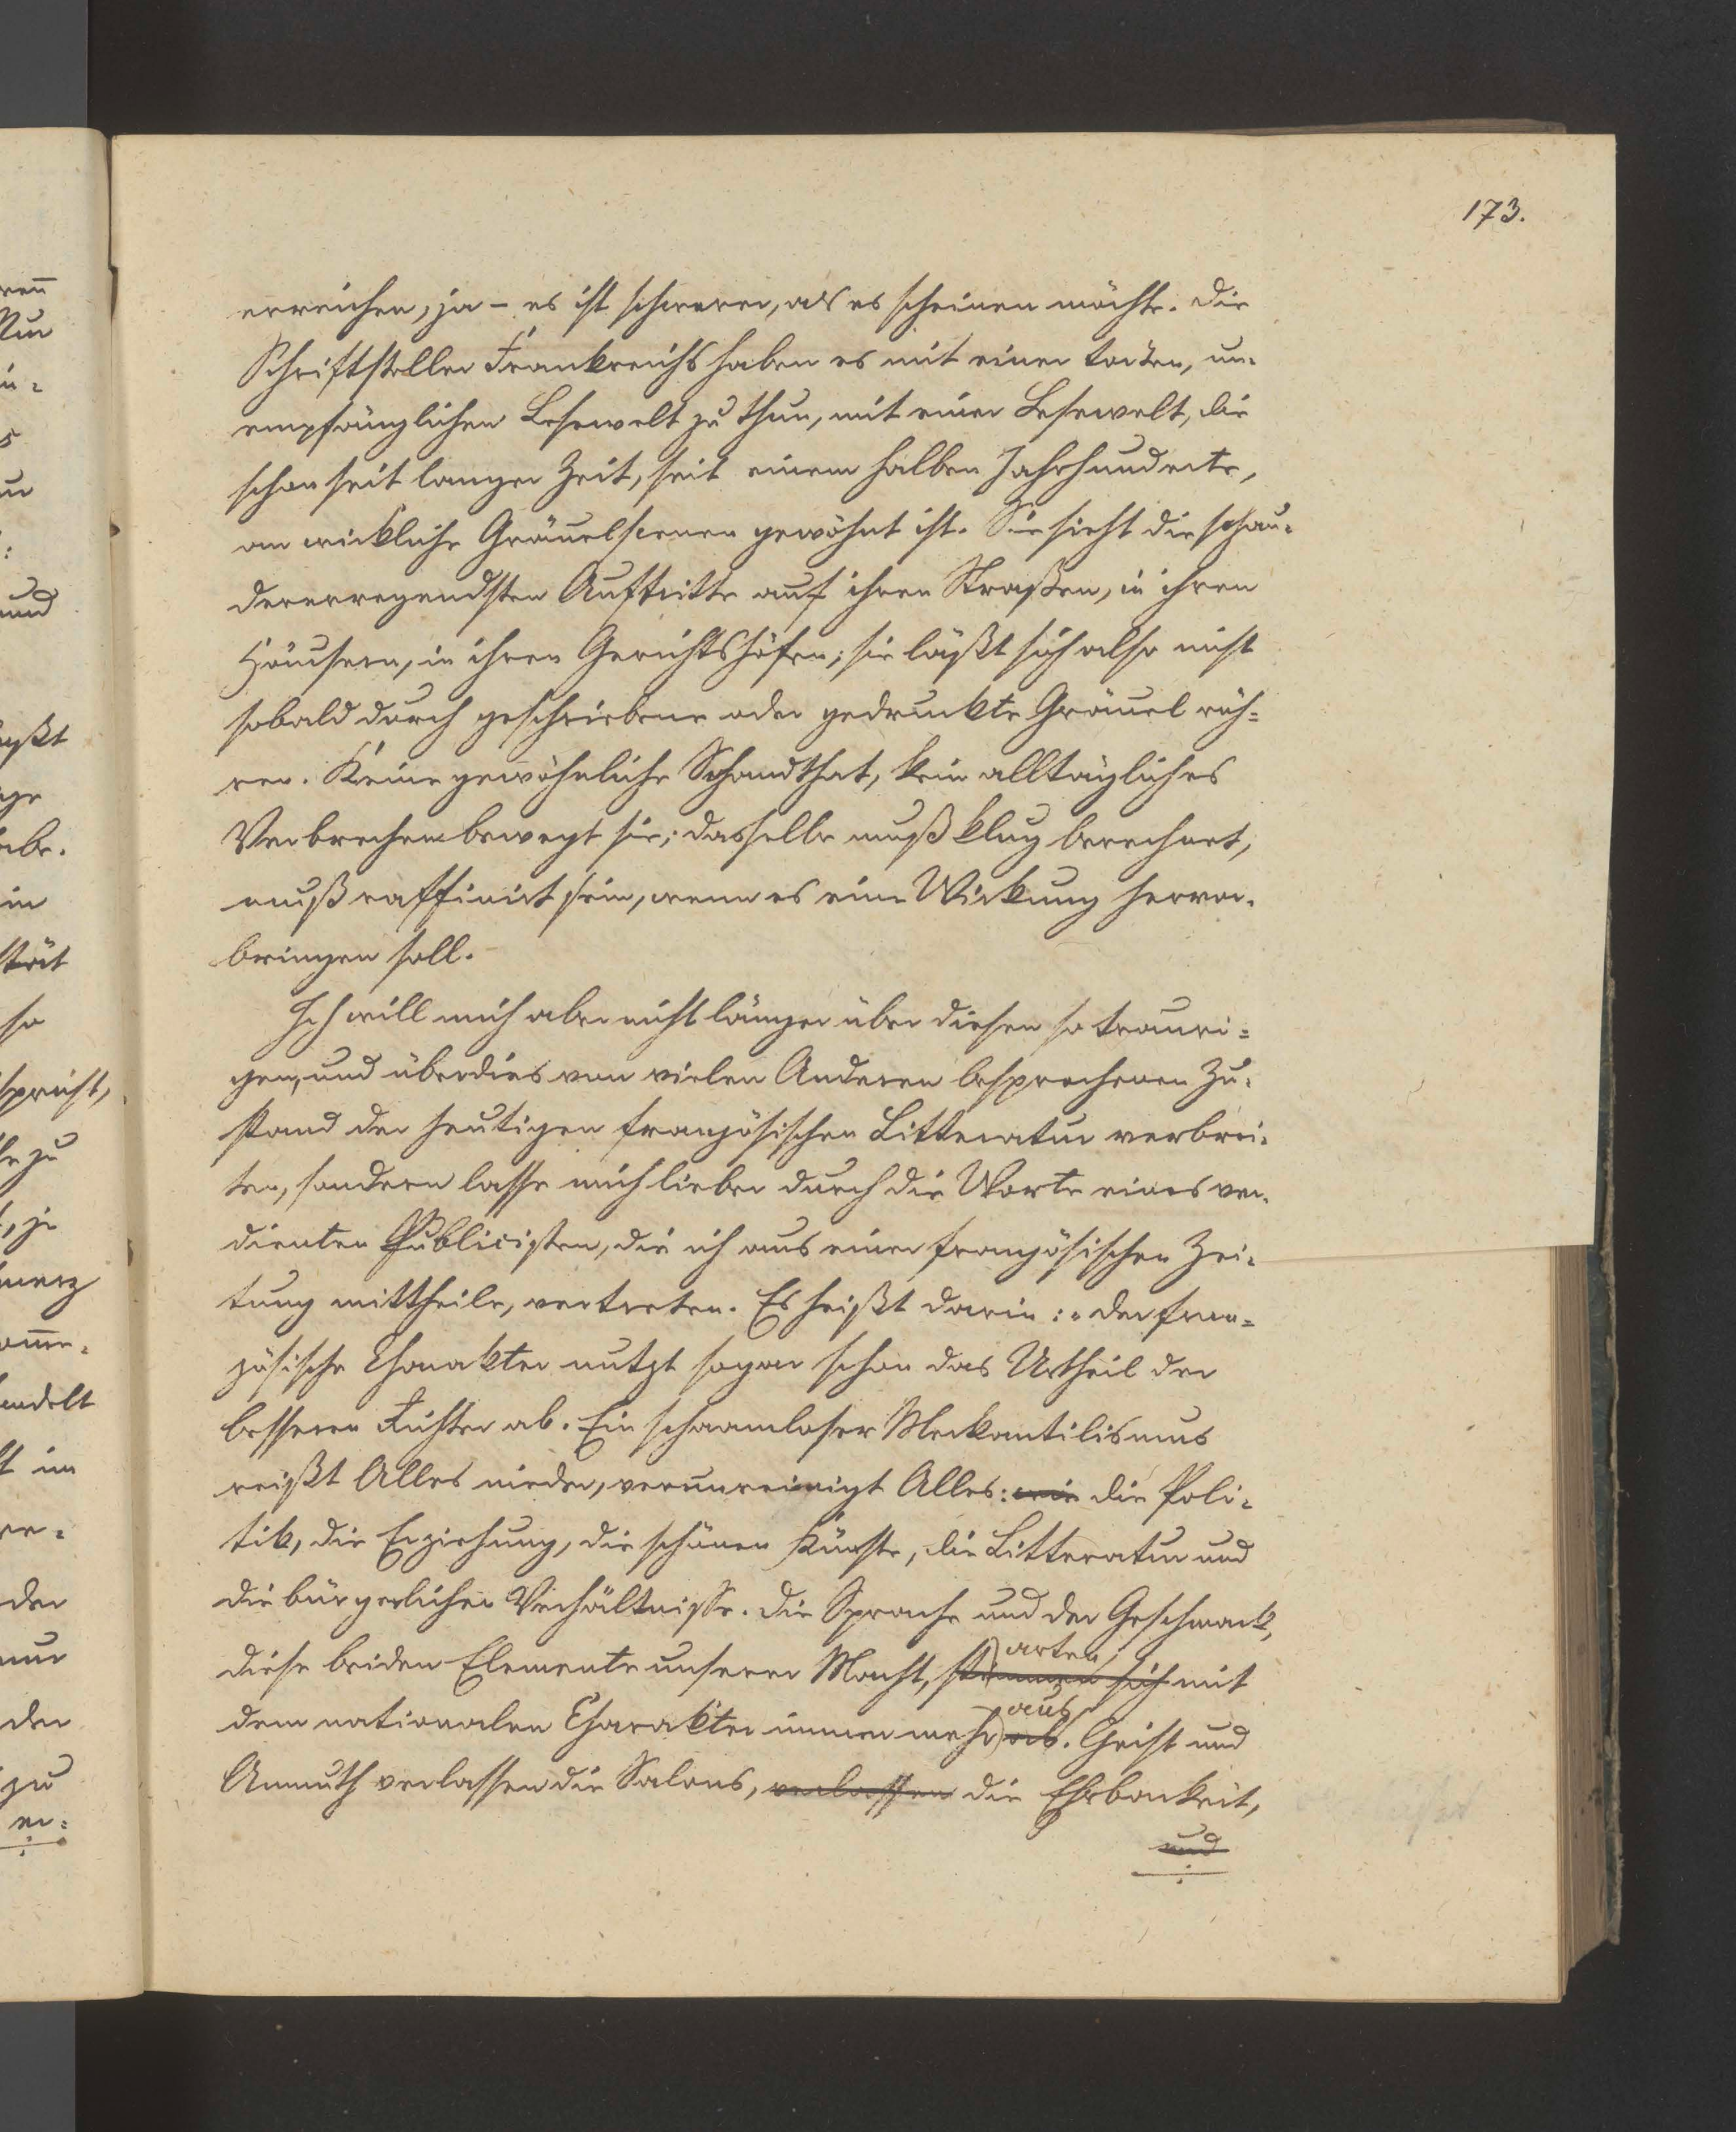 173.
erreichen, ja – es ist schwerer, als es scheinen möchte. Die
Schriftsteller Frankreichs haben es mit einer todten, un-
empfänglichen Lesewelt zu thun, mit einer Lesewelt, die
schon seit langer Zeit, seit einem halben Jahrhunderte,
an wirkliche Gräuelscenen gewöhnt ist. Sie sieht die schau-
dererregendsten Auftritte auf ihren Straßen, in ihren
Häusern, in ihren Gerichtshöfen; sie läßt sich also nicht
sobald durch geschriebene oder gedruckte Gräuel rüh-
ren. Keine gewöhnliche Schandthat, kein alltägliches
Verbrechen bewegt sie; dasselbe muß klug berechnet,
muß raffinirt sein, wenn es eine Wirkung hervor-
bringen soll.
Ich will mich aber nicht länger über diesen so trauri-
gen, und überdies von vielen Anderen besprochenen Zu-
stand der heutigen französischen Litteratur verbrei-
ten, sondern lasse mich lieber durch die Worte eines ver-
dienten Publicisten, die ich aus einer französischen Zei-
tung mittheile, vertreten. Es heißt darin: „der fran-
zösische Charakter nutzt sogar schon das Urtheil der
besseren Richter ab. Ein schaamloser Merkantilismus
reißt Alles nieder, verunreinigt Alles: wie die Poli-
tik, die Erziehung, die schönen Künste, die Litteratur und
die bürgerlichen Verhältnisse. Die Sprache und der Geschmack,
diese beiden Elemente unserer Macht, arten sich mit
dem nationalen Charakter immer mehr aus ab. Geist und
Anmuth verlassen die Salons, verlassen die Ehrbarkeit,
und